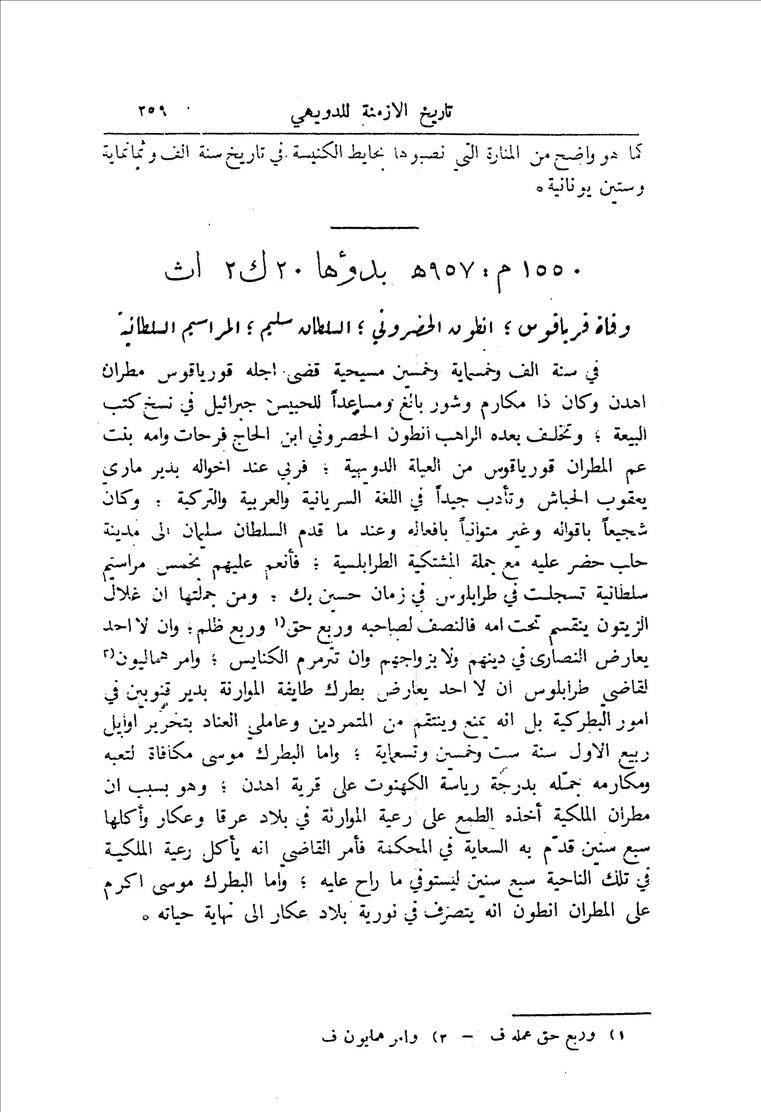 تاريخ الازمنة للدويهي ٢٥٩
كما هو واضح من المنارة التي نصبوها بحايط الكنيسة في تاريخ سنة الف وثمانماية
وستين يونانية ٠
١٥٥٠ م : ٩٥٧ هـ بدؤها ٢٠ ك٢ اث
وفاة قرياقوس ؛ انطون الحصروني ؛ السلطان سليم ؛ المراسيم السلطانية
في سنة الف وخمسماية وخمسين مسيحية قضى اجله قورياقوس مطران
اهدن وكان ذا مكارم وشور بالغ ومساعداً للحبيس جبرائيل في نسخ كتب
البيعة ؛ وتخلف بعده الراهب انطون الحصروني ابن الحاج فرحات وامه بنت
عم المطران قورياقوس من العيلة الدويهية ؛ فربي عند اخواله بدير ماري
يعقوب الحباش وتأدب جيداً في اللغة السريانية والعربية والتركية ؛ وكان
شجيعاً باقواله وغير متوانياً بافعاله وعند ما قدم السلطان سليمان الى مدينة
حلب حضر عليه مع جملة المشتكية الطرابلسية ؛ فأنعم عليهم بخمس مراسيم
سلطانية تسجلت في طرابلوس في زمان حسين بك ؛ ومن جملتها ان غلال
الزيتون ينقسم تحت امه فالنصف لصاحبه وربع حق١) وربع ظلم؛ وان لا احد
يعارض النصارى في دينهم ولا بزواجهم وان تترمرم الكنايس ؛ وامر هماليون٢)
لقاضي طرابلوس ان لا احد يعارض بطرك طايفة الموارنة بدير قنوبين في
امور البطركية بل انه يمنع وينتقم من المتمردين وعاملي العناد بتحرير اوايل
ربيع الاول سنة ست وخمسين وتسعماية ؛ واما البطرك موسى مكافاة لتعبه
ومكارمه جمّله بدرجة رياسة الكهنوت على قرية اهدن ؛ وهو بسبب ان
مطران الملكية أخذه الطمع على رعية الموارنة في بلاد عرقا وعكار وأكلها
سبع سنين قدّم به السعاية في المحكمة فأمر القاضي انه يأكل رعية الملكية
في تلك الناحية سبع سنين ليستوفي ما راح عليه ؛ واما البطرك موسى اكرم
على المطران انطون انه يتصرف في نورية بلاد عكار الى نهاية حياته ٠
١) وربع حق عمله ف – ٢) وامر همايون ف